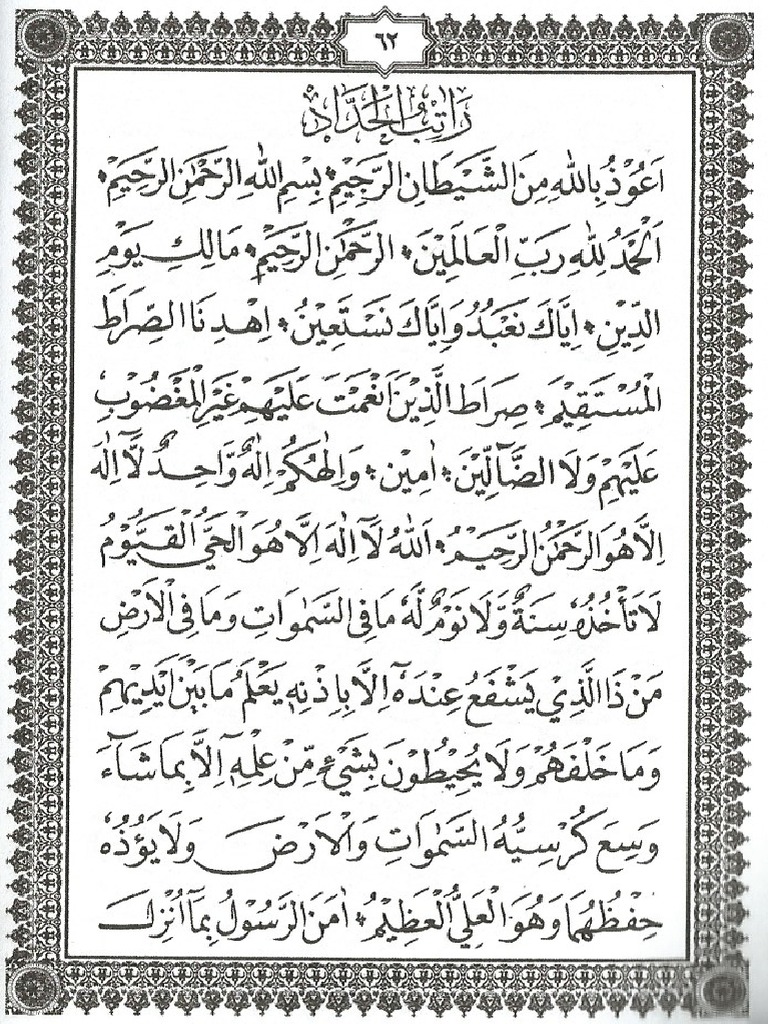 ٦٢
رَاتِبُ الْحَدَّادِ
اَعُوْذُ بِاللهِ مِنَ الشَّيْطَانِ الرَّجِيْمِ ۞ بِسْمِ اللهِ الرَّحْمٰنِ الرَّحِيْمِ ۞
اَلْحَمْدُ لِلهِ رَبِّ الْعَالَمِيْنَ ۞ الرَّحْمٰنِ الرَّحِيْمِ ۞ مَالِكِ يَوْمِ
الدِّيْنِ ۞ اِيَّاكَ نَعْبُدُ وَاِيَّاكَ نَسْتَعِيْنُ ۞ اِهْدِنَا الصِّرَاطَ
الْمُسْتَقِيْمَ ۞ صِرَاطَ الَّذِيْنَ اَنْعَمْتَ عَلَيْهِمْ غَيْرِ الْمَغْضُوْبِ
عَلَيْهِمْ وَلَا الضَّآلِّيْنَ ۞ اٰمِيْن ۞ وَاِلٰهُكُمْ اِلٰهٌ وَّاحِدٌ لَّآ اِلٰهَ
اِلَّا هُوَ الرَّحْمٰنُ الرَّحِيْمُ ۞ اَللهُ لَآ اِلٰهَ اِلَّا هُوَ الْحَيُّ الْقَيُّوْمُ
لَا تَأْخُذُهٗ سِنَةٌ وَّلَا نَوْمٌ لَّهٗ مَا فِى السَّمٰوَاتِ وَمَا فِى الْاَرْضِ
مَنْ ذَا الَّذِيْ يَشْفَعُ عِنْدَهٗٓ اِلَّا بِاِذْنِهٖ يَعْلَمُ مَا بَيْنَ اَيْدِيْهِمْ
وَمَا خَلْفَهُمْ وَلَا يُحِيْطُوْنَ بِشَيْءٍ مِّنْ عِلْمِهٖٓ اِلَّا بِمَا شَآءَ
وَسِعَ كُرْسِيُّهُ السَّمٰوَاتِ وَالْاَرْضَ وَلَا يَؤُدُهٗ
حِفْظُهُمَا وَهُوَ الْعَلِيُّ الْعَظِيْمُ ۞ اٰمَنَ الرَّسُوْلُ بِمَآ اُنْزِلَ